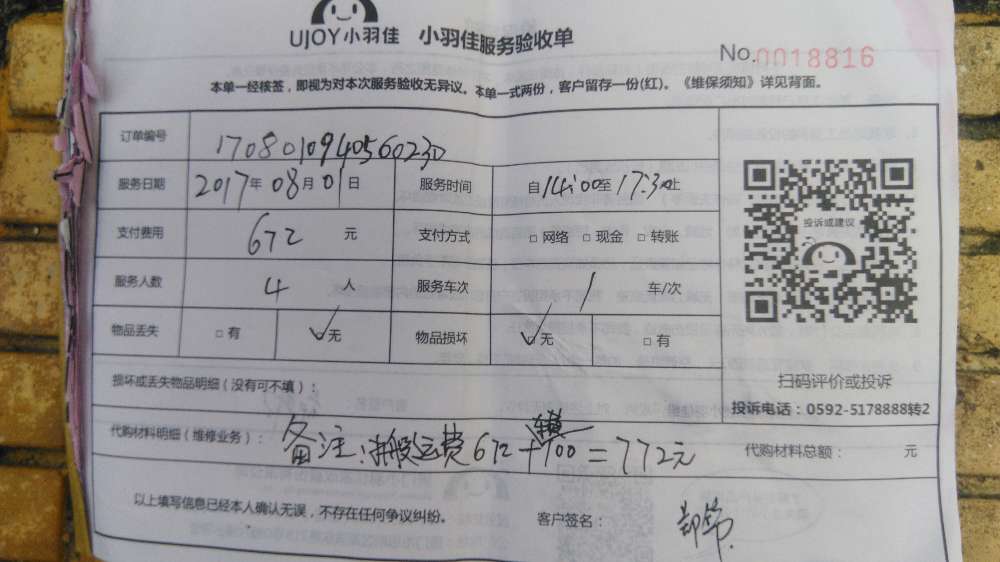 UJOY小羽佳 小羽佳服务验收单
No.0018816
本单一经核签，即视为对本次服务验收无异议。本单一式两份，客户留存一份(红)。《维保须知》详见背面。
订单编号 17080109405660230
服务日期 2017年08月01日 服务时间 自14:00至17:30止
支付费用 672 元 支付方式 □网络 □现金 □转账
服务人数 4 人 服务车次 1 车/次
物品丢失 □有 ☑无 物品损坏 ☑无 □有
投诉或建议
扫码评价或投诉
投诉电话：0592-5178888转2
损坏或丢失物品明细（没有可不填）：
代购材料明细（维修业务）： 备注：搬运费672+100=772元
代购材料总额： 元
以上填写信息已经本人确认无误，不存在任何争议纠纷。 客户签名：